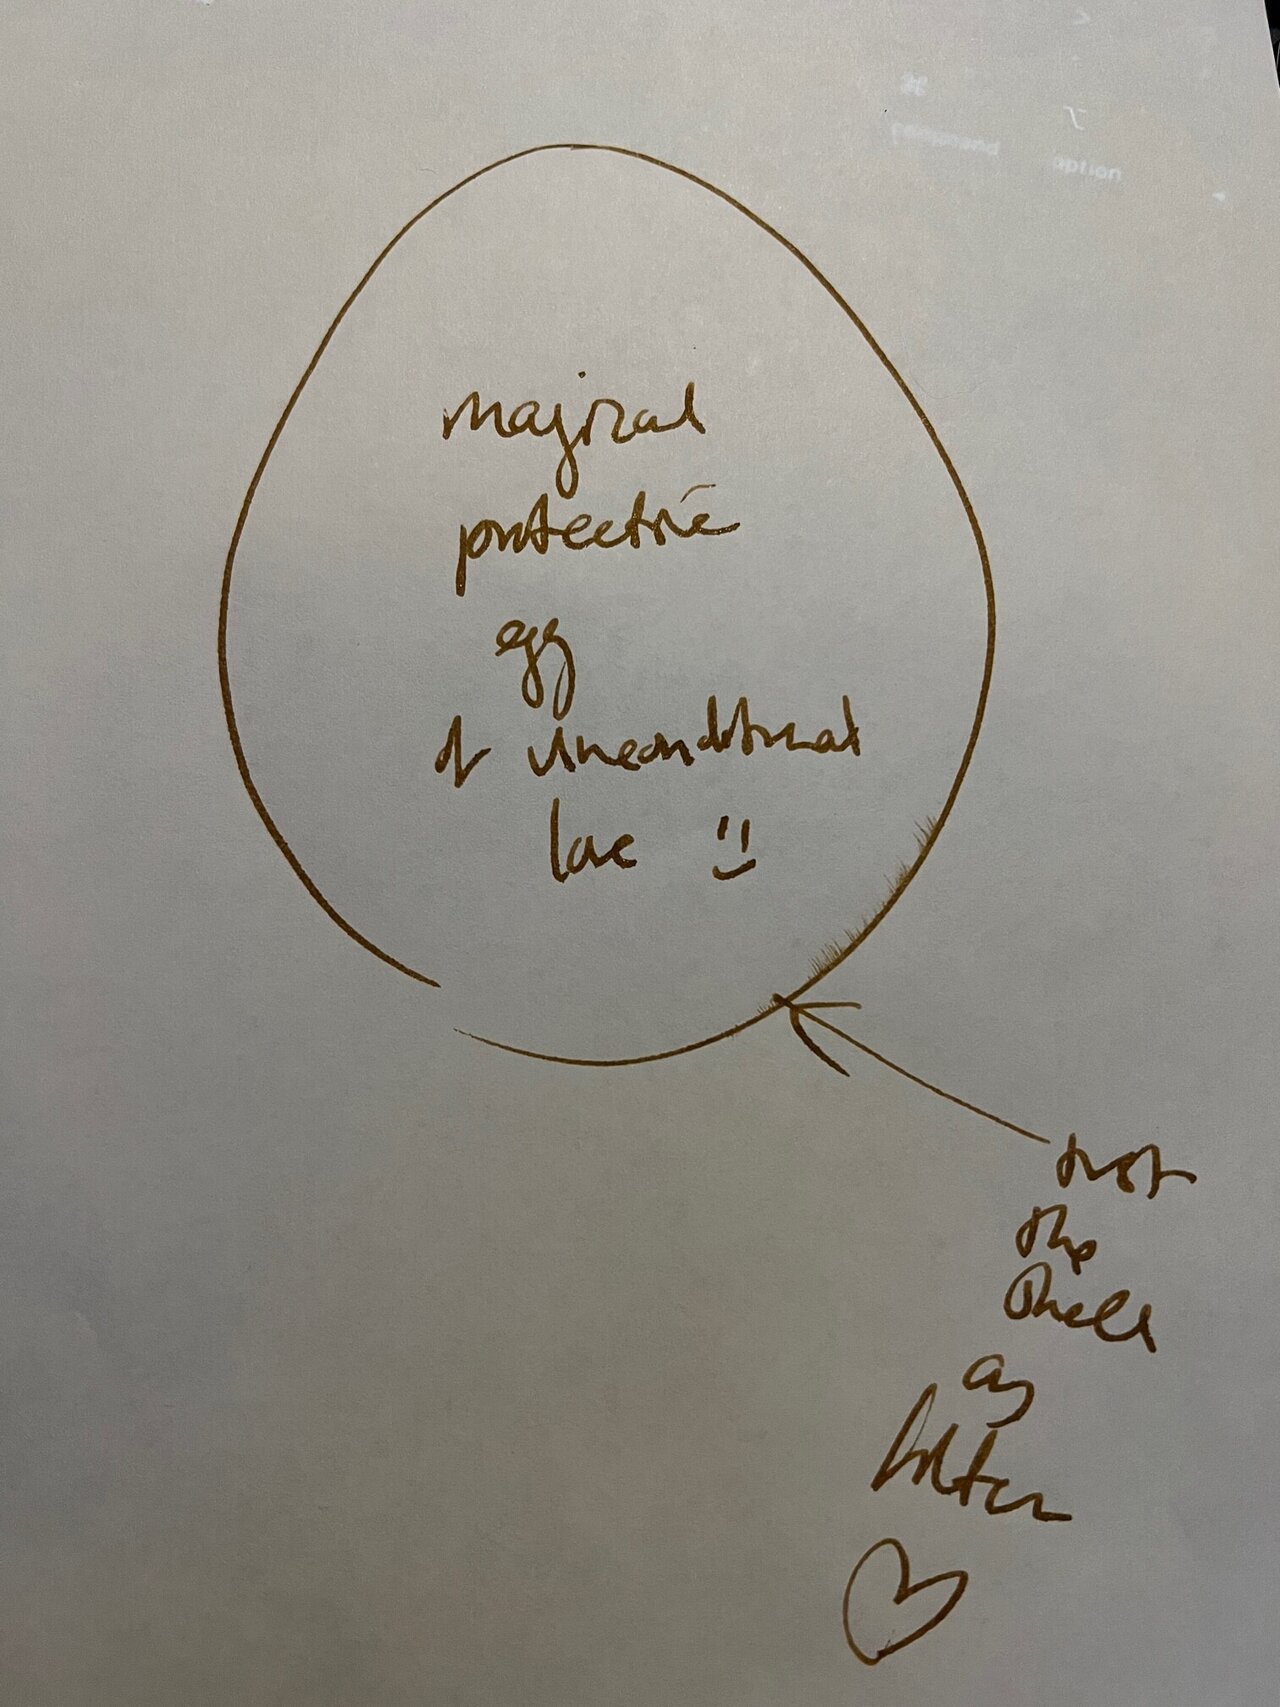 magical
protective
egg
of unconditional
love
trust
the
shell
as
filter
option